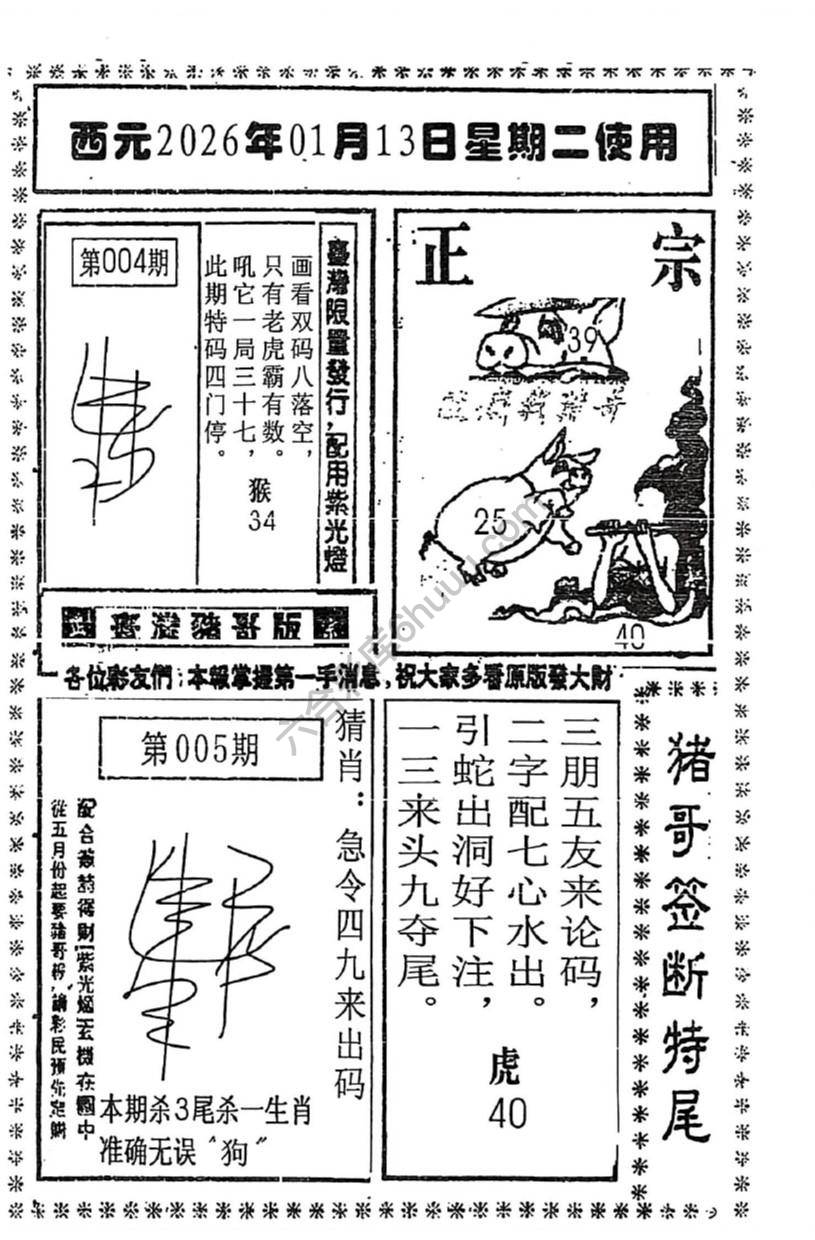 西元2026年01月13日星期二使用
第004期
臺灣限量發行，配用紫光燈
画看双码八落空，
只有老虎霸有数。
吼它一局三十七，
此期特码四门停。
猴
34
正 宗
39
25
40
臺灣豬哥版
各位彩友們：本報掌握第一手消息，祝大家多看原版發大財
第005期
猜肖：急令四九来出码
從五月份起要豬哥報，請彩民預先定購
本期杀3尾杀一生肖
准确无误〝狗〞
三朋五友来论码，
二字配七心水出。
引蛇出洞好下注，
一三来头九夺尾。
虎
40
猪哥签断特尾